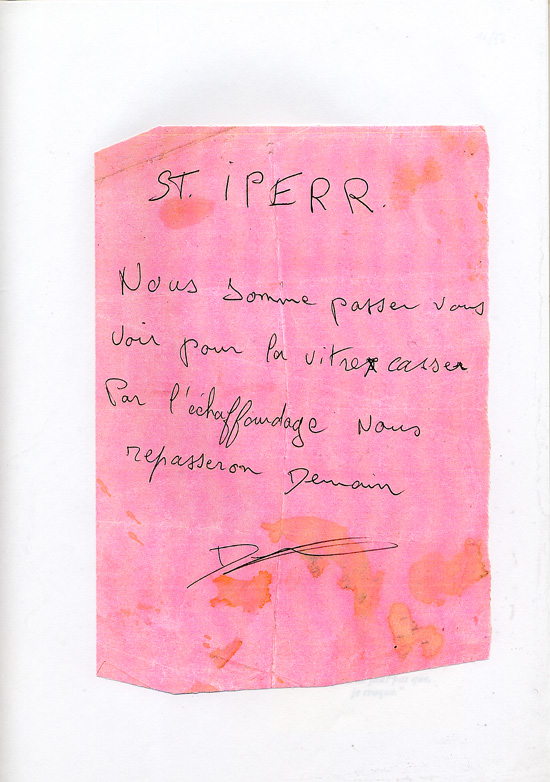 ST. iPERR.
Nous somme passer vous
voir pour la vitre casser
Par l'échaffourdage Nous
repasseron Demain